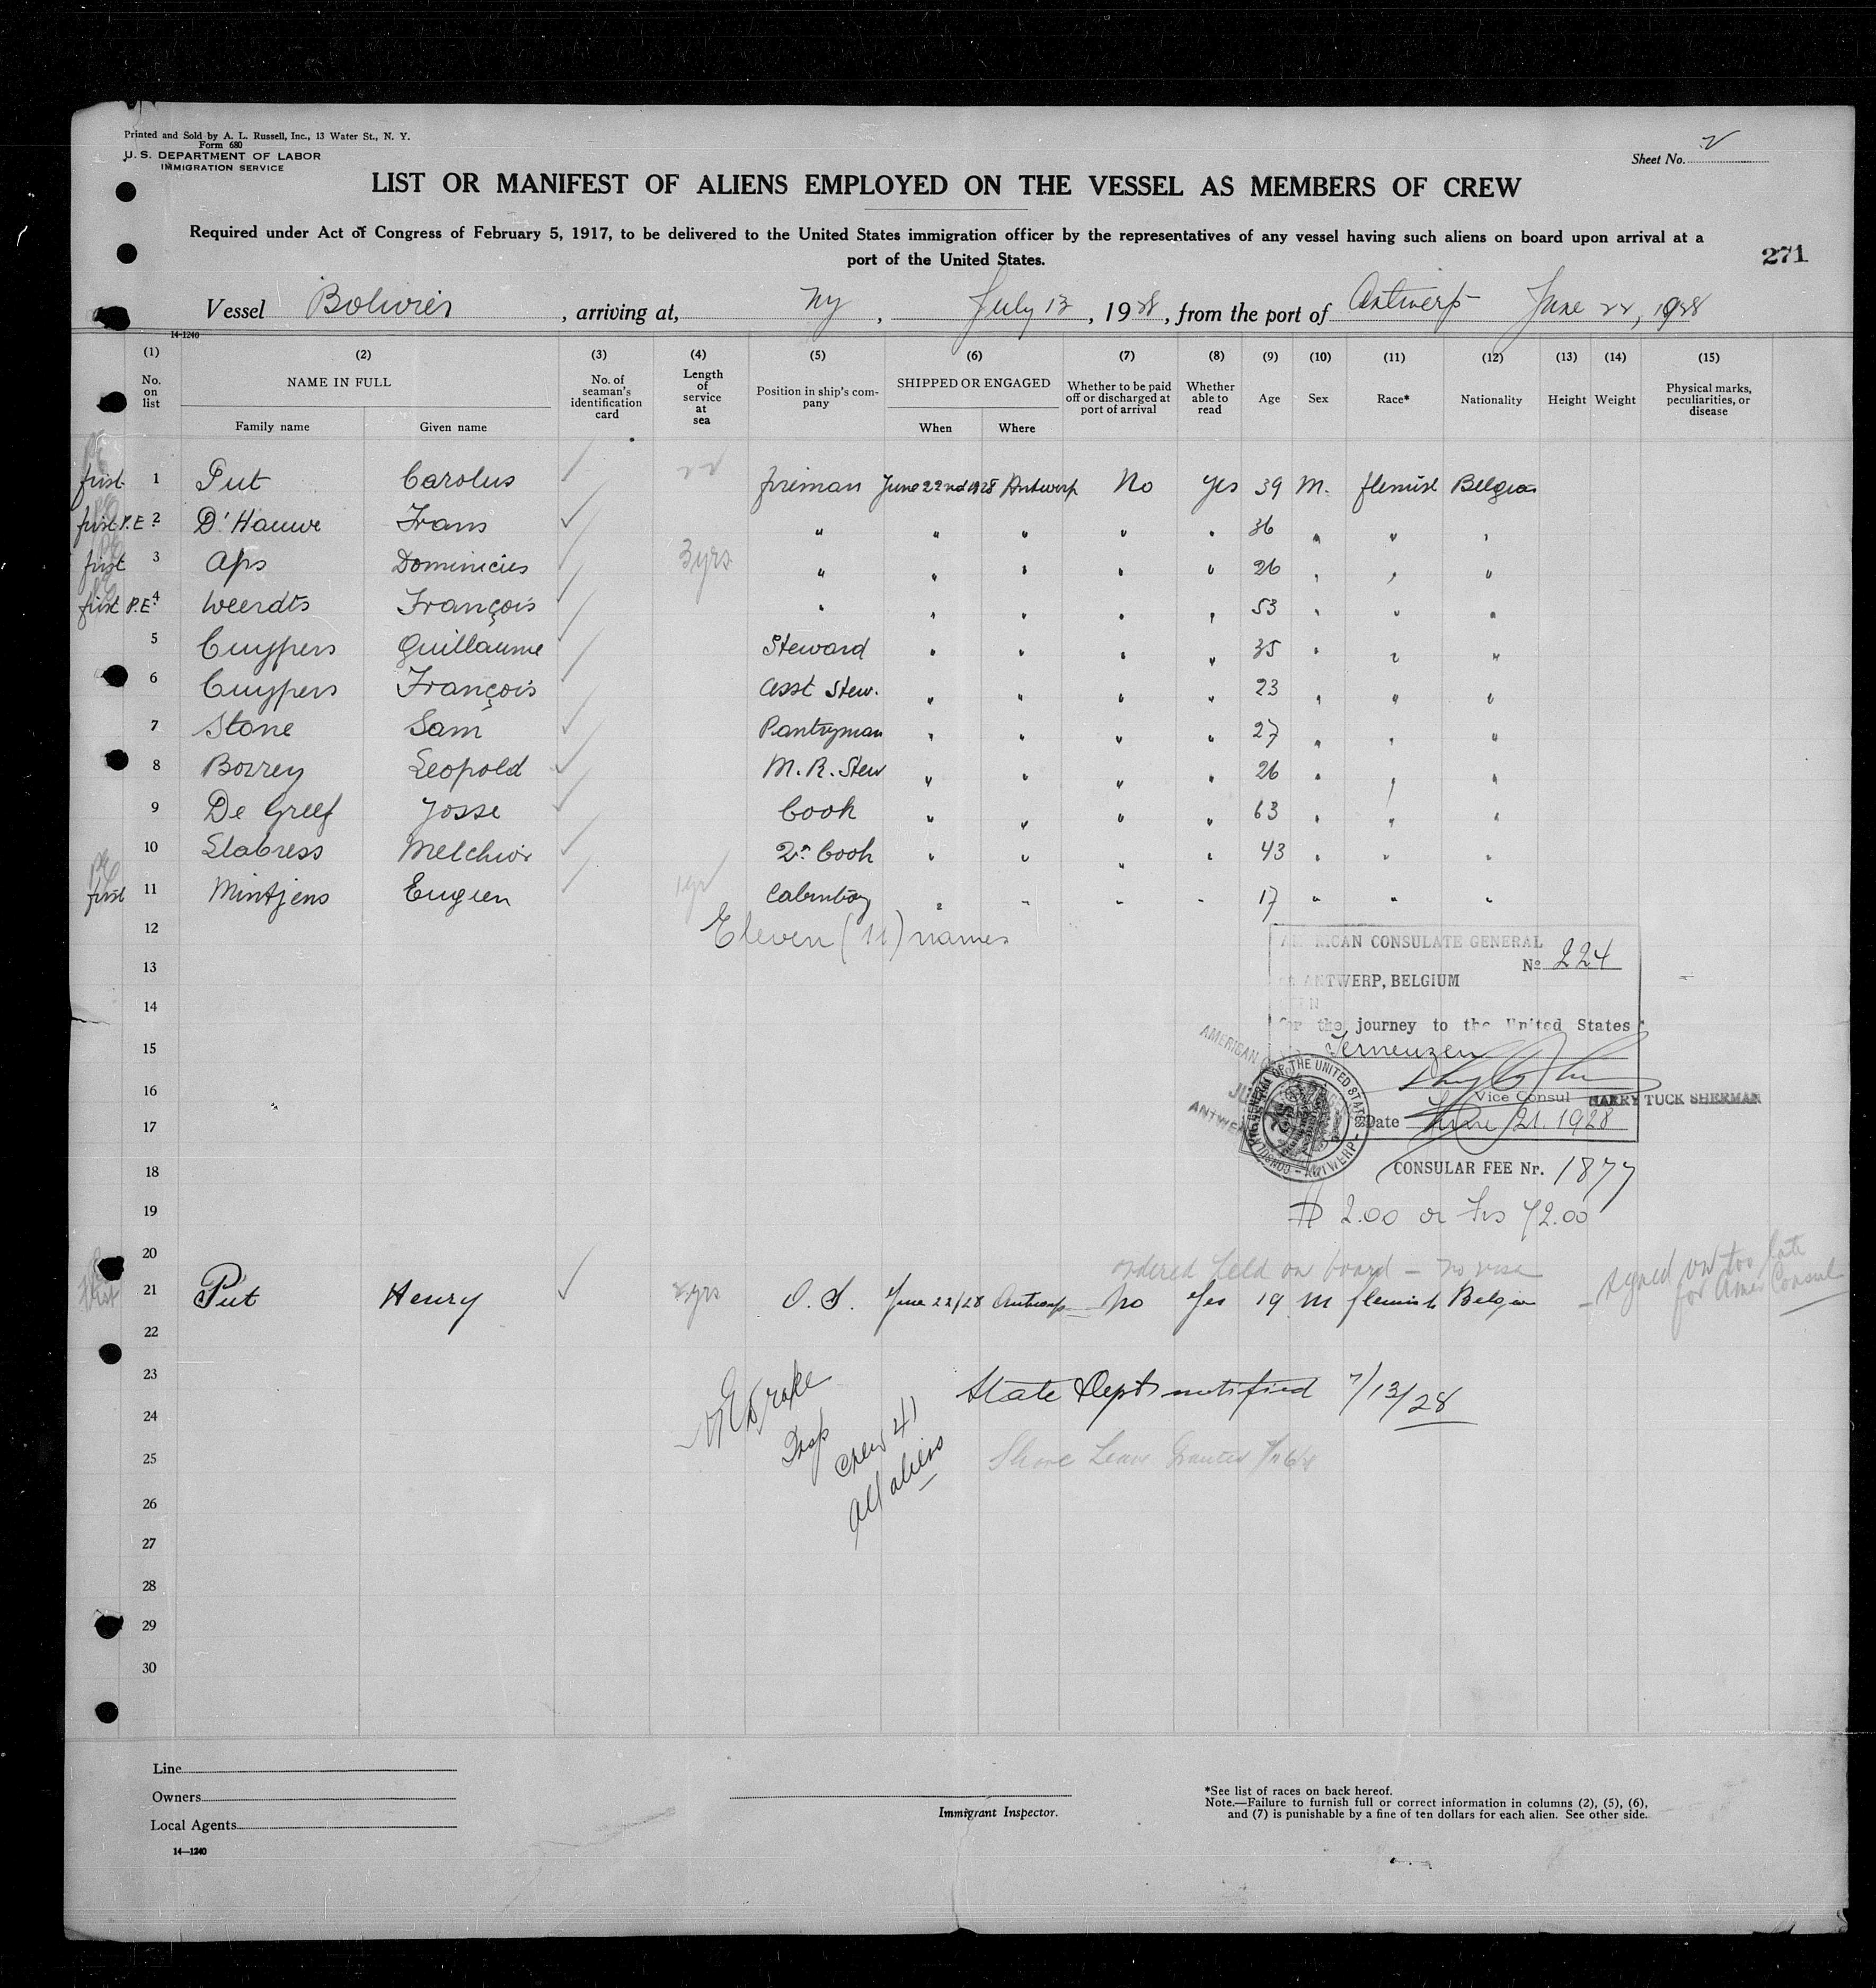 Printed and Sold by A. L. Russell, Inc., 13 Water St., N. Y.
Form 680
U. S. DEPARTMENT OF LABOR
IMMIGRATION SERVICE
Sheet No. 2
LIST OR MANIFEST OF ALIENS EMPLOYED ON THE VESSEL AS MEMBERS OF CREW
Required under Act of Congress of February 5, 1917, to be delivered to the United States immigration officer by the representatives of any vessel having such aliens on board upon arrival at a
port of the United States.
271
Vessel Bolivier, arriving at, Ny, July 12, 1928, from the port of Antwerp June 22, 1928
14-1240
(1) (2) (3) (4) (5) (6) (7) (8) (9) (10) (11) (12) (13) (14) (15)
No. on list NAME IN FULL Family name Given name No. of seaman's identification card Length of service at sea Position in ship's company SHIPPED OR ENGAGED When Where Whether to be paid off or discharged at port of arrival Whether able to read Age Sex Race* Nationality Height Weight Physical marks, peculiarities, or disease
first 1 Put Carolus 22 fireman June 22nd 1928 Antwerp No Yes 39 M. flemish Belgian
first P.E. 2 D'Hauwe Frans " " " " " 36 " " "
first 3 Aps Dominicus 3 yrs " " " " " 26 " " "
first P.E. 4 Weerdts François " " " " " 53 " " "
5 Cuypers Guillaume Steward " " " " 35 " " "
6 Cuypers François Asst Stew. " " " " 23 " " "
7 Stone Sam Pantryman " " " " 27 " " "
8 Borrey Leopold M. R. Stew " " " " 26 " " "
9 De Greef Josse Cook " " " " 63 " " "
10 Slabress Melchior 2n Cook " " " " 43 " " "
first 11 Mintjens Eugeen 1 yr Cabinboy " " " " 17 " " "
12 Eleven (11) names
13
14
15
16
17
18
19
20
AMERICAN CONSULATE GENERAL
No 224
ANTWERP, BELGIUM
for the journey to the United States
Terneuzen
Vice Consul HARRY TUCK SHERMAN
Date June 21. 1928
CONSULAR FEE Nr. 1877
$ 2.00 or Frs 72.00
ordered held on board - no visa
21 Put Henry yrs O. S. June 22/28 Antwerp No Yes 19 M flemish Belgian - signed on too late
for Amer Consul
22
23 State Dept notified 7/13/28
24 Drake
25 Insp Shore Leave Granted
Crew 41
All aliens
26
27
28
29
30
Line
Owners
Local Agents
14—1240
Immigrant Inspector.
*See list of races on back hereof.
Note.—Failure to furnish full or correct information in columns (2), (5), (6),
and (7) is punishable by a fine of ten dollars for each alien. See other side.